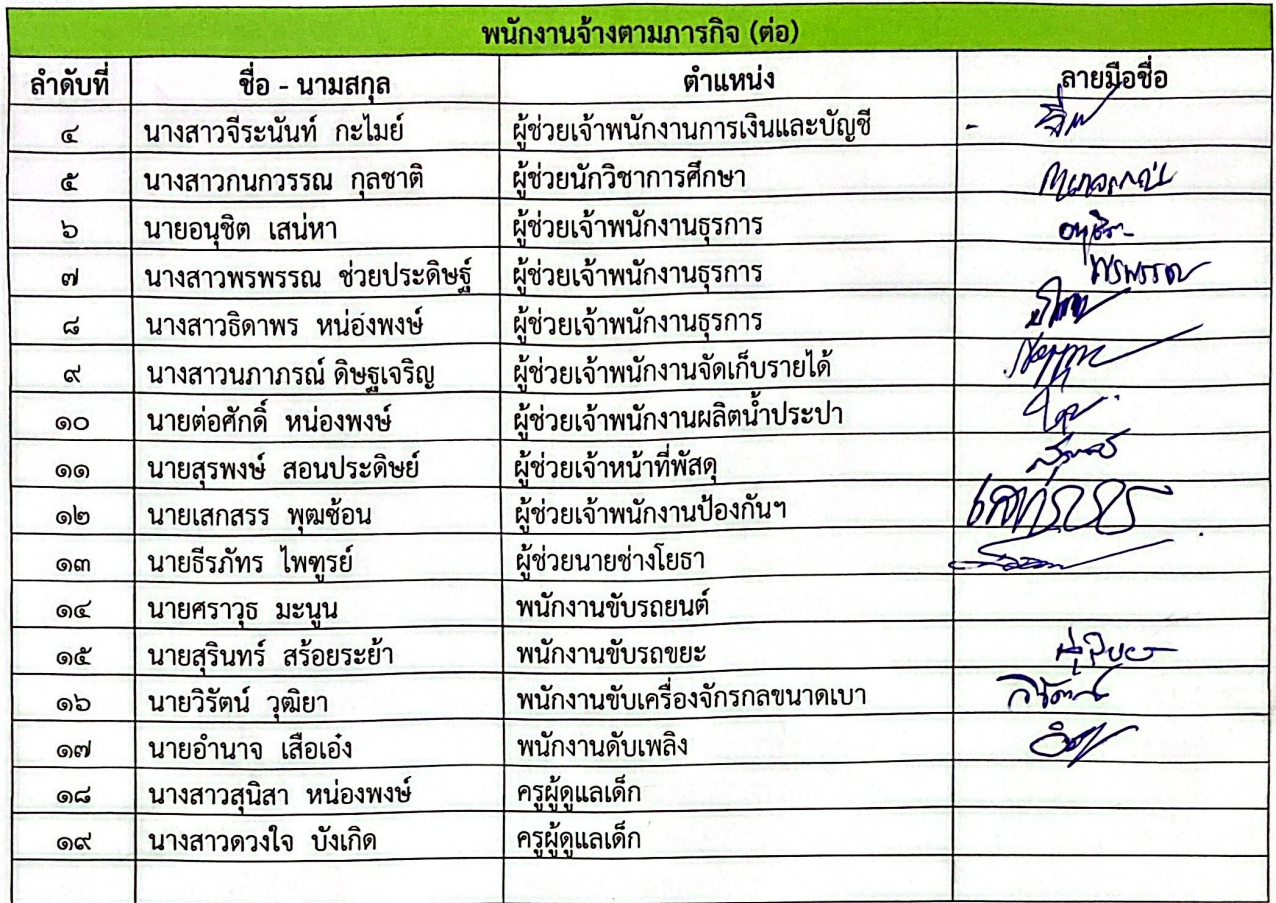 พนักงานจ้างตามภารกิจ (ต่อ)
ลำดับที่ ชื่อ - นามสกุล ตำแหน่ง ลายมือชื่อ
๔ นางสาวจีระนันท์ กะไมย์ ผู้ช่วยเจ้าพนักงานการเงินและบัญชี -
๕ นางสาวกนกวรรณ กุลชาติ ผู้ช่วยนักวิชาการศึกษา
๖ นายอนุชิต เสน่หา ผู้ช่วยเจ้าพนักงานธุรการ
๗ นางสาวพรพรรณ ช่วยประดิษฐ์ ผู้ช่วยเจ้าพนักงานธุรการ พรพรรณ
๘ นางสาวธิดาพร หน่องพงษ์ ผู้ช่วยเจ้าพนักงานธุรการ
๙ นางสาวนภาภรณ์ ดิษฐเจริญ ผู้ช่วยเจ้าพนักงานจัดเก็บรายได้
๑๐ นายต่อศักดิ์ หน่องพงษ์ ผู้ช่วยเจ้าพนักงานผลิตน้ำประปา
๑๑ นายสุรพงษ์ สอนประดิษย์ ผู้ช่วยเจ้าหน้าที่พัสดุ
๑๒ นายเสกสรร พุฒซ้อน ผู้ช่วยเจ้าพนักงานป้องกันฯ
๑๓ นายธีรภัทร ไพฑูรย์ ผู้ช่วยนายช่างโยธา
๑๔ นายศราวุธ มะนูน พนักงานขับรถยนต์
๑๕ นายสุรินทร์ สร้อยระย้า พนักงานขับรถขยะ
๑๖ นายวิรัตน์ วุฒิยา พนักงานขับเครื่องจักรกลขนาดเบา วิรัตน์
๑๗ นายอำนาจ เสือเอ๋ง พนักงานดับเพลิง
๑๘ นางสาวสุนิสา หน่องพงษ์ ครูผู้ดูแลเด็ก
๑๙ นางสาวดวงใจ บังเกิด ครูผู้ดูแลเด็ก